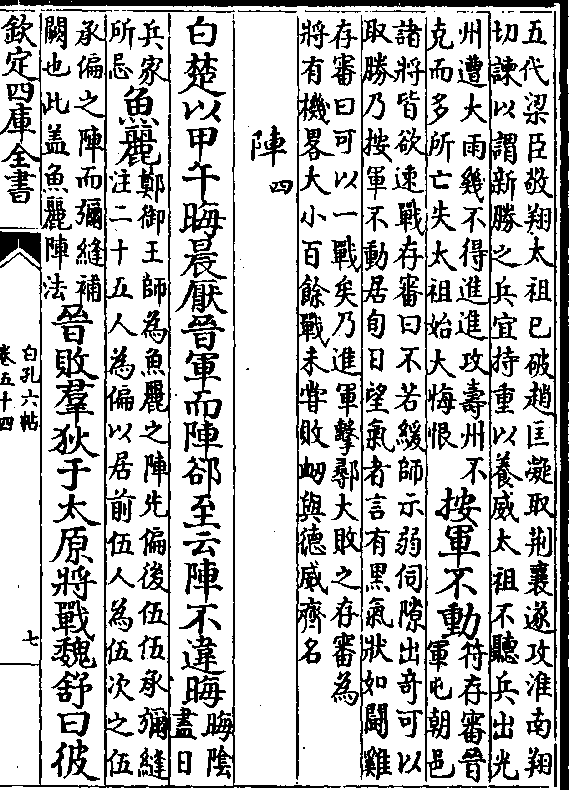 五代梁臣敬翔太祖已破趙匡凝取荆襄遂攻淮南翔
切諫以謂新勝之兵宜持重以養威太祖不聽兵出光
州遭大雨幾不得進進攻壽州不
克而多所亡失太祖始大悔恨
按軍不動
符存審晉
軍屯朝邑
諸將皆欲速戰存審曰不若緩師示弱伺隙出奇可以
取勝乃按軍不動居旬日望氣者言有黑氣狀如鬭雞
存審曰可以一戰矣乃進軍擊鄩大敗之存審為
將有機畧大小百餘戰未甞敗衂與德威齊名
陣四
白楚以甲午晦晨厭晉軍而陣郤至云陣不違晦
晦陰
盡日
兵家
所忌
魚麗
鄭御王師為魚麗之陣先偏後伍伍承彌縫
注二十五人為偏以居前伍人為伍次之伍
承偏之陣而彌縫補
闕也此盖魚麗陣法
晉敗羣狄于太原將戰魏舒曰彼
欽定四庫全書
白孔六帖
卷五十四
七